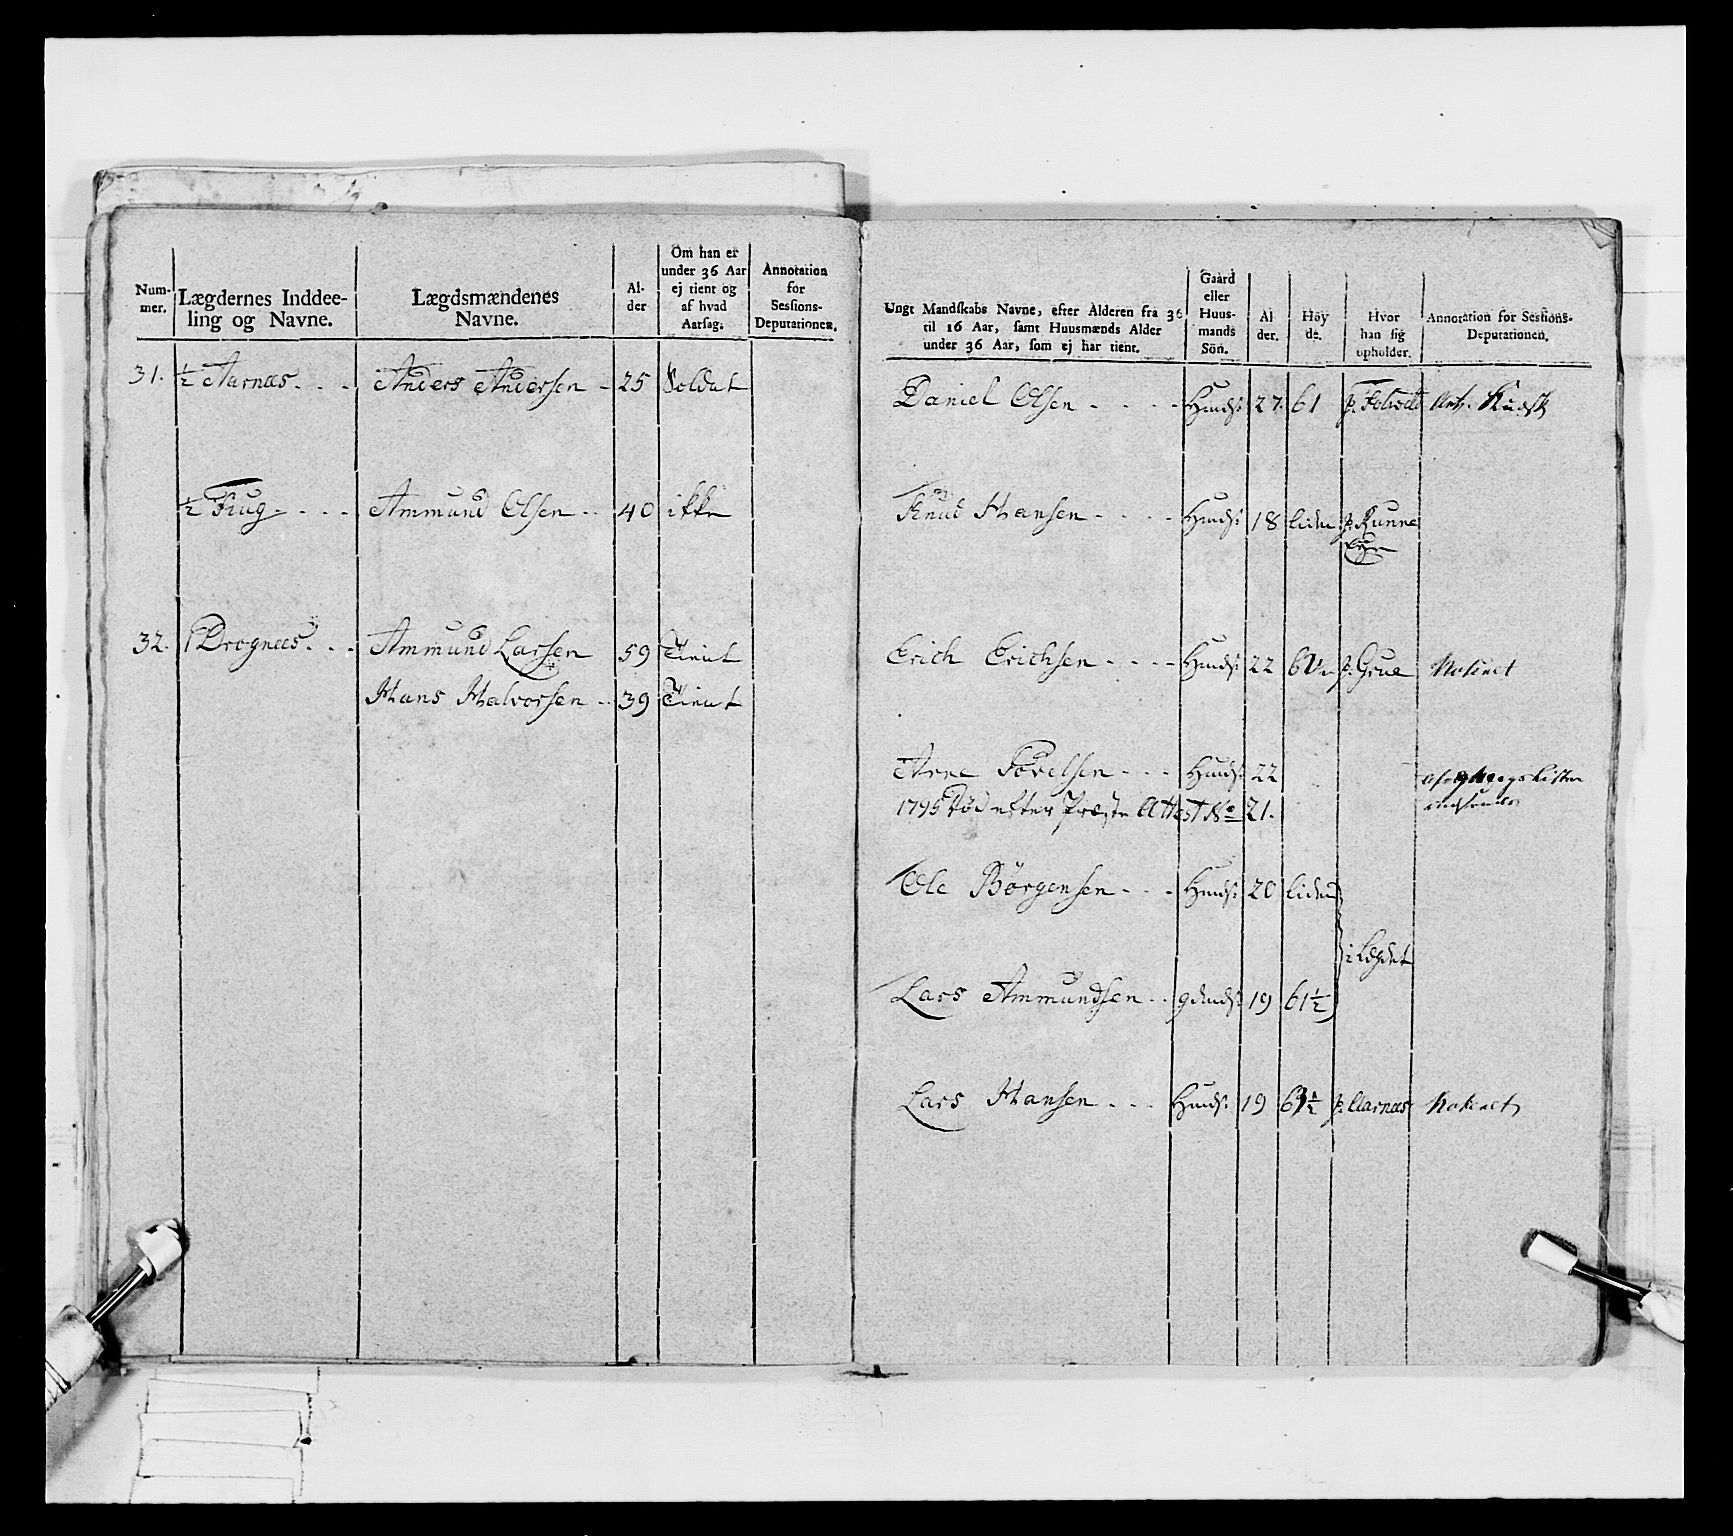 Num-
mer.
Lægdernes Inddee-
ling og Navne.
Lægdsmændenes
Navne.
Al-
der
Om han er
under 36 Aar
ej tient og
af hvad
Aarsag.
Annotation
for
Sessions-
Deputationen.
31. ½ Aarnæs Anders Andersen 25 Soldat
½ Fiug Ammund Olsen 40 ikke
32. 1 Drognæs Ammund Larsen 59 Tient
Hans Halvorsen 39 Tient
Ungt Mandskabs Navne, efter Alderen fra 36
til 16 Aar, samt Huusmænds Alder
under 36 Aar, som ej har tient.
Gaard
eller
Huus-
mands
Sön.
Al
der.
Höy
de.
Hvor
han sig
opholder.
Annotation for Sessions-
Deputationen.
Daniel Olsen Hmds: 27. 61 Art. Kudsk
Knud Hansen Hmds: 18 liden p. Runne
Eye
Erich Erichsen Hmds: 22 p. Grue Noteret
Arne Povelsen Hmds: 22
1795 Död efter Præste Attest No 21.
Ole Börgensen Hmds: 20 liden
i Legdet
Lars Ammundsen gdmds: 19 61½
Lars Hansen Hmds: 19 p. Aarnæs Noteret